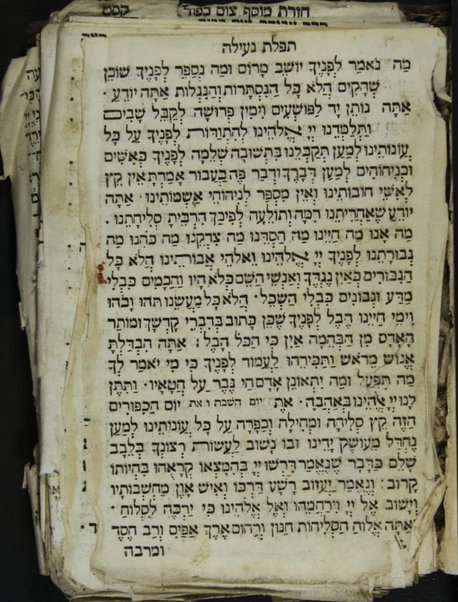 תפלת נעילה
מַה נֹּאמַר לְפָנֶיךָ יוֹשֵׁב מָרוֹם וּמַה נְּסַפֵּר לְפָנֶיךָ שׁוֹכֵן
שְׁחָקִים הֲלֹא כָּל הַנִּסְתָּרוֹת וְהַנִּגְלוֹת אַתָּה יוֹדֵעַ׃
אַתָּה נוֹתֵן יָד לַפּוֹשְׁעִים וִימִין פְּרוּשָׁה לְקַבֵּל שָׁבִים
וַתְּלַמְּדֵנוּ יְיָ אֱלֹהֵינוּ לְהִתְוַדּוֹת לְפָנֶיךָ עַל כָּל
עֲוֹנוֹתֵינוּ לְמַעַן תְּקַבְּלֵנוּ בִּתְשׁוּבָה שְׁלֵמָה לְפָנֶיךָ כְּאִשִּׁים
וּכְנִיחוֹחִים לְמַעַן דְּבָרְךָ וּדְבַר פֶּה בַּעֲבוּר אָמָרְתָּ אֵין קֵץ
לְאִשֵּׁי חוֹבוֹתֵינוּ וְאֵין מִסְפָּר לְנִיחוֹחֵי אַשְׁמוֹתֵינוּ׃ אַתָּה
יוֹדֵעַ שֶׁאַחֲרִיתֵנוּ רִמָּה וְתוֹלֵעָה לְפִיכָךְ הִרְבֵּיתָ סְלִיחָתֵנוּ׃
מָה אָנוּ מֶה חַיֵּינוּ מֶה חַסְדֵּנוּ מַה צִּדְקֵנוּ מַה כֹּחֵנוּ מַה
גְּבוּרָתֵנוּ לְפָנֶיךָ יְיָ אֱלֹהֵינוּ וֵאלֹהֵי אֲבוֹתֵינוּ הֲלֹא כָּל
הַגִּבּוֹרִים כְּאַיִן נֶגְדֶּךָ וְאַנְשֵׁי הַשֵּׁם כְּלֹא הָיוּ וַחֲכָמִים כִּבְלִי
מַדָּע וּנְבוֹנִים כִּבְלִי הַשְׂכֵּל׃ הֲלֹא כָּל מַעֲשֵׂנוּ תֹּהוּ וָבֹהוּ
וִימֵי חַיֵּינוּ הֶבֶל לְפָנֶיךָ שֶׁכֵּן כָּתוּב בְּדִבְרֵי קָדְשְׁךָ וּמוֹתַר
הָאָדָם מִן הַבְּהֵמָה אָיִן כִּי הַכֹּל הָבֶל׃ אַתָּה הִבְדַּלְתָּ
אֱנוֹשׁ מֵרֹאשׁ וַתַּכִּירֵהוּ לַעֲמוֹד לְפָנֶיךָ כִּי מִי יֹאמַר לְךָ
מַה תִּפְעָל וּמַה יִּתְאוֹנֵן אָדָם חַי גֶּבֶר עַל חֲטָאָיו׃ וַתִּתֵּן
לָנוּ יְיָ אֱלֹהֵינוּ בְּאַהֲבָה׃ אֶת יוֹם השבת ז ואת יוֹם הַכִּפּוּרִים
הַזֶּה קֵץ סְלִיחָה וּמְחִילָה וְכַפָּרָה עַל כָּל עֲוֹנוֹתֵינוּ לְמַעַן
נֶחְדַּל מֵעֹשֶׁק יָדֵינוּ וּבוֹ נָשׁוּב לַעֲשׂוֹת רְצוֹנְךָ בְּלֵבָב
שָׁלֵם כַּדָּבָר שֶׁנֶּאֱמַר דִּרְשׁוּ יְיָ בְּהִמָּצְאוֹ קְרָאֻהוּ בִּהְיוֹתוֹ
קָרוֹב׃ וְנֶאֱמַר יַעֲזוֹב רָשָׁע דַּרְכּוֹ וְאִישׁ אָוֶן מַחְשְׁבוֹתָיו
וְיָשׁוּב אֶל יְיָ וִירַחֲמֵהוּ וְאֶל אֱלֹהֵינוּ כִּי יַרְבֶּה לִסְלוֹחַ׃
אַתָּה אֱלוֹהַּ הַסְּלִיחוֹת חַנּוּן וְרַחוּם אֶרֶךְ אַפַּיִם וְרַב חֶסֶד
ומרבה